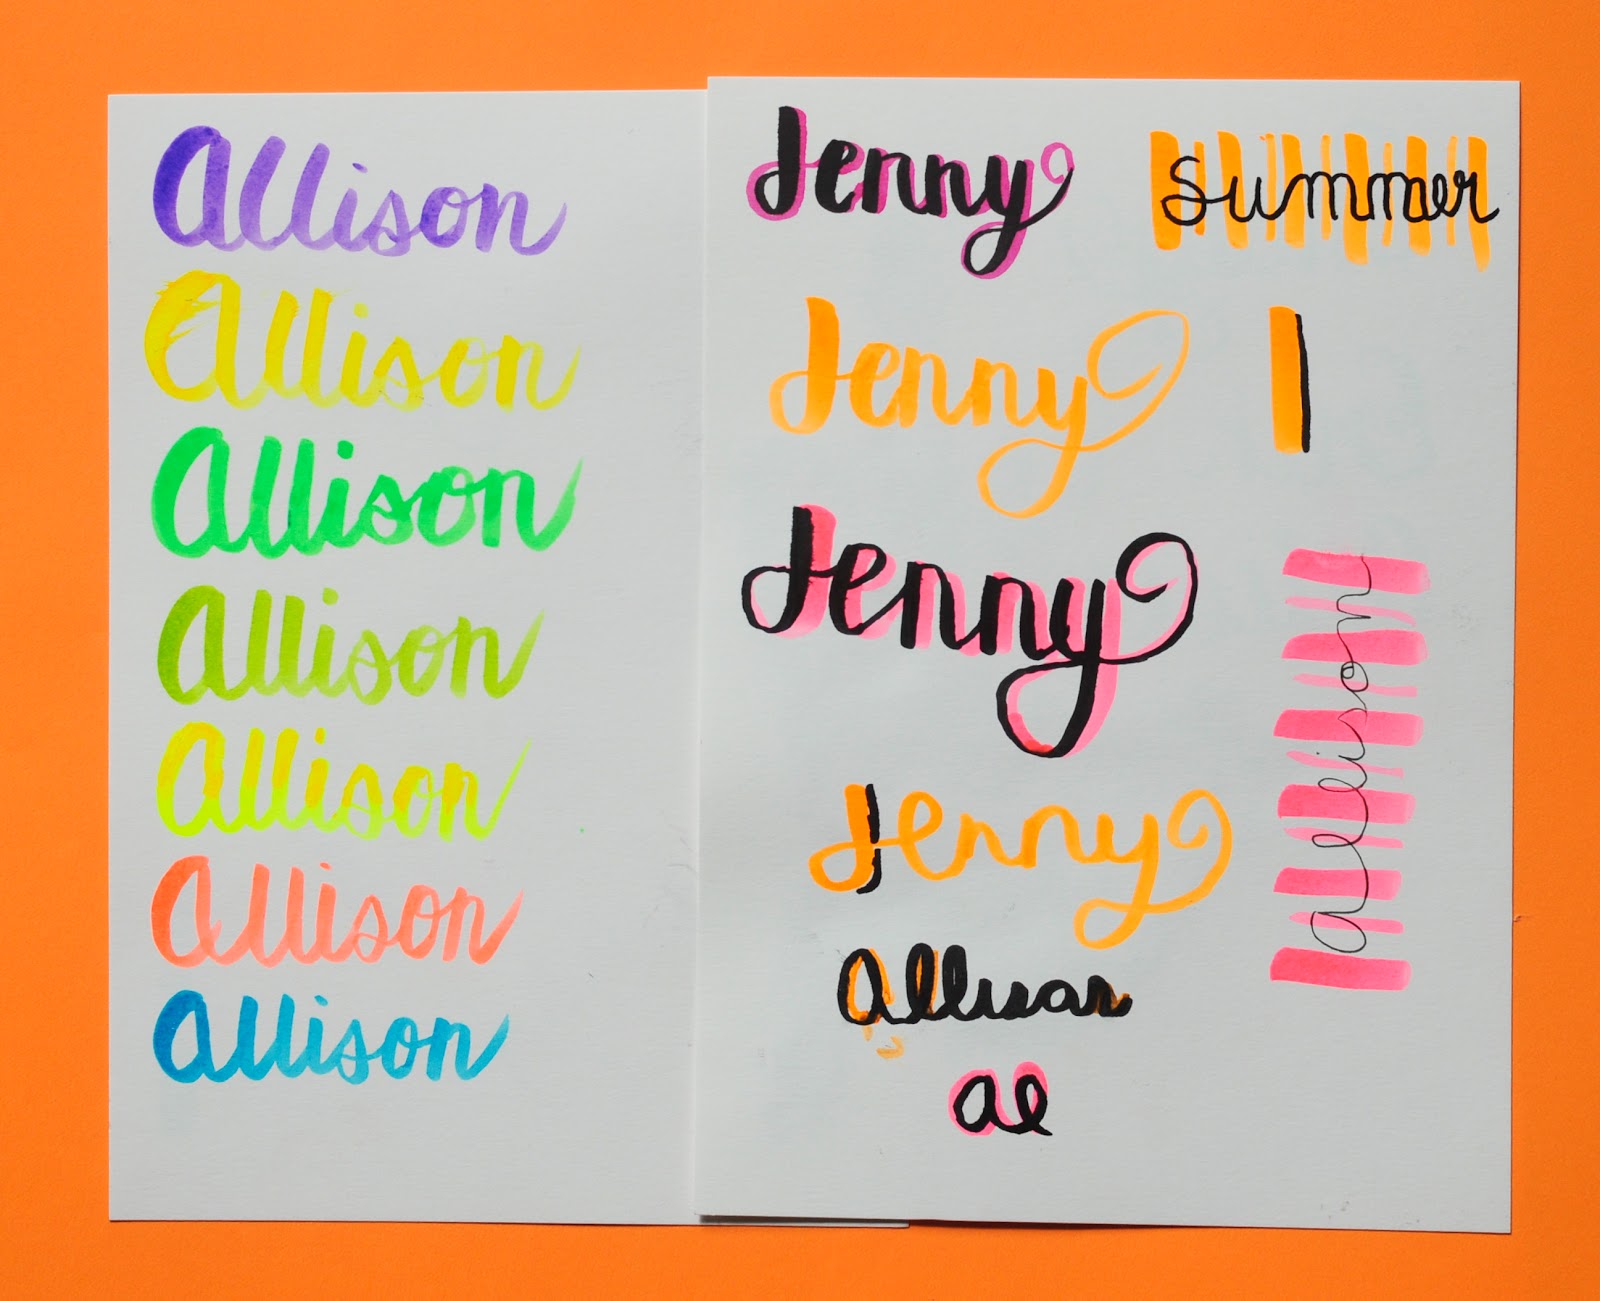 Allison
Allison
Allison
Allison
Allison
Allison
Allison
Jenny
summer
Jenny
Jenny
allison
Jenny
allison
al